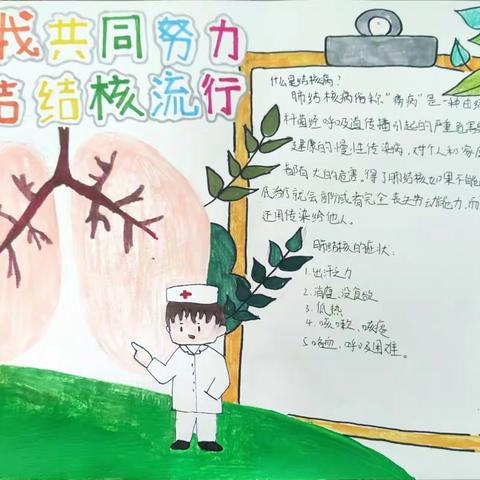 我共同努力
结结核流行
什么是结核病?
肺结核病俗称"痨病"是一种由结
杆菌经呼吸道传播引起的严重危害
健康的慢性传染病,对个人和家庭
都有大的危害,得了肺结核如果不能
底治疗就会部或者完全丧失劳动能力,而
还用传染给他人。
肺结核的症状:
1.出汗乏力
2.消瘦.没食欲
3.低热
4.咳嗽、咳痰
5.咯血,呼吸困难。